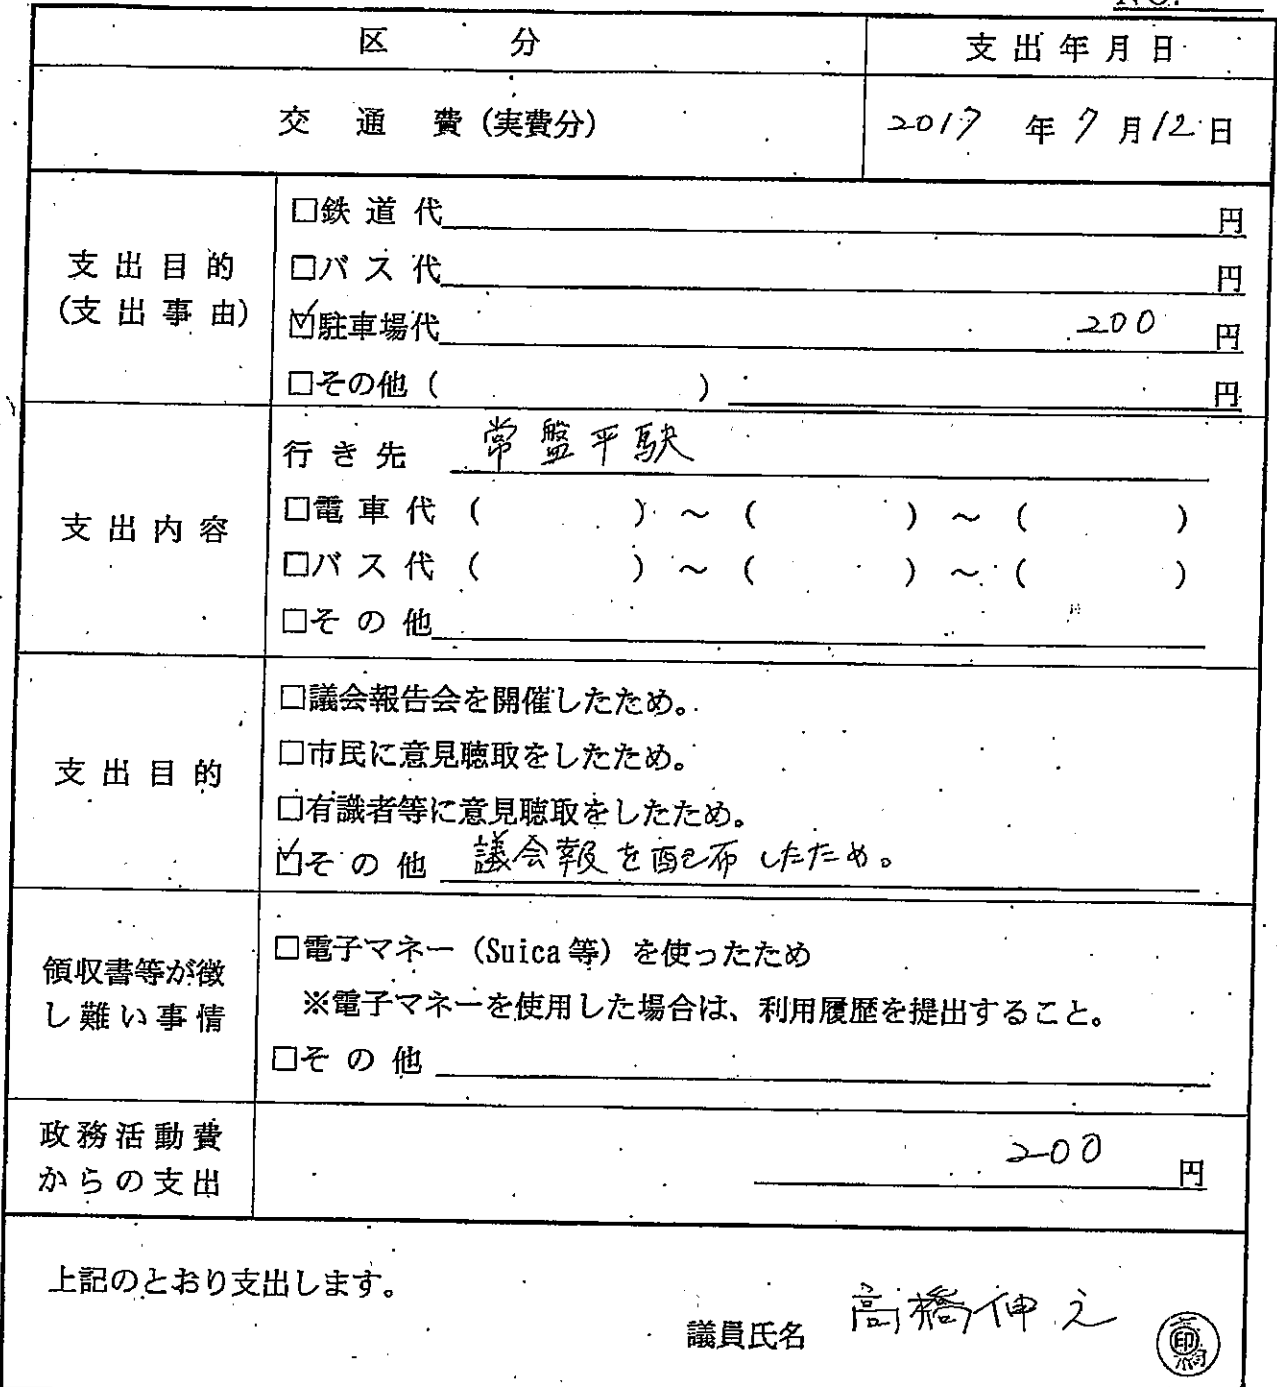 NO.
区 分 支出年月日
交 通 費 (実費分) 2017 年 7 月 12 日
支出目的
(支出事由)
□鉄 道 代 円
□バ ス 代 円
☑駐車場代 200 円
□その他 ( ) 円
支出内容
行 き 先 常盤平駅
□電 車 代 ( ) ~ ( ) ~ ( )
□バ ス 代 ( ) ~ ( ) ~ ( )
□そ の 他
支出目的
□議会報告会を開催したため。
□市民に意見聴取をしたため。
□有識者等に意見聴取をしたため。
☑そ の 他 議会報を配布したため。
領収書等が徴
し難い事情
□電子マネー (Suica等) を使ったため
※電子マネーを使用した場合は、利用履歴を提出すること。
□そ の 他
政務活動費
からの支出
200 円
上記のとおり支出します。
議員氏名 高橋伸之 印